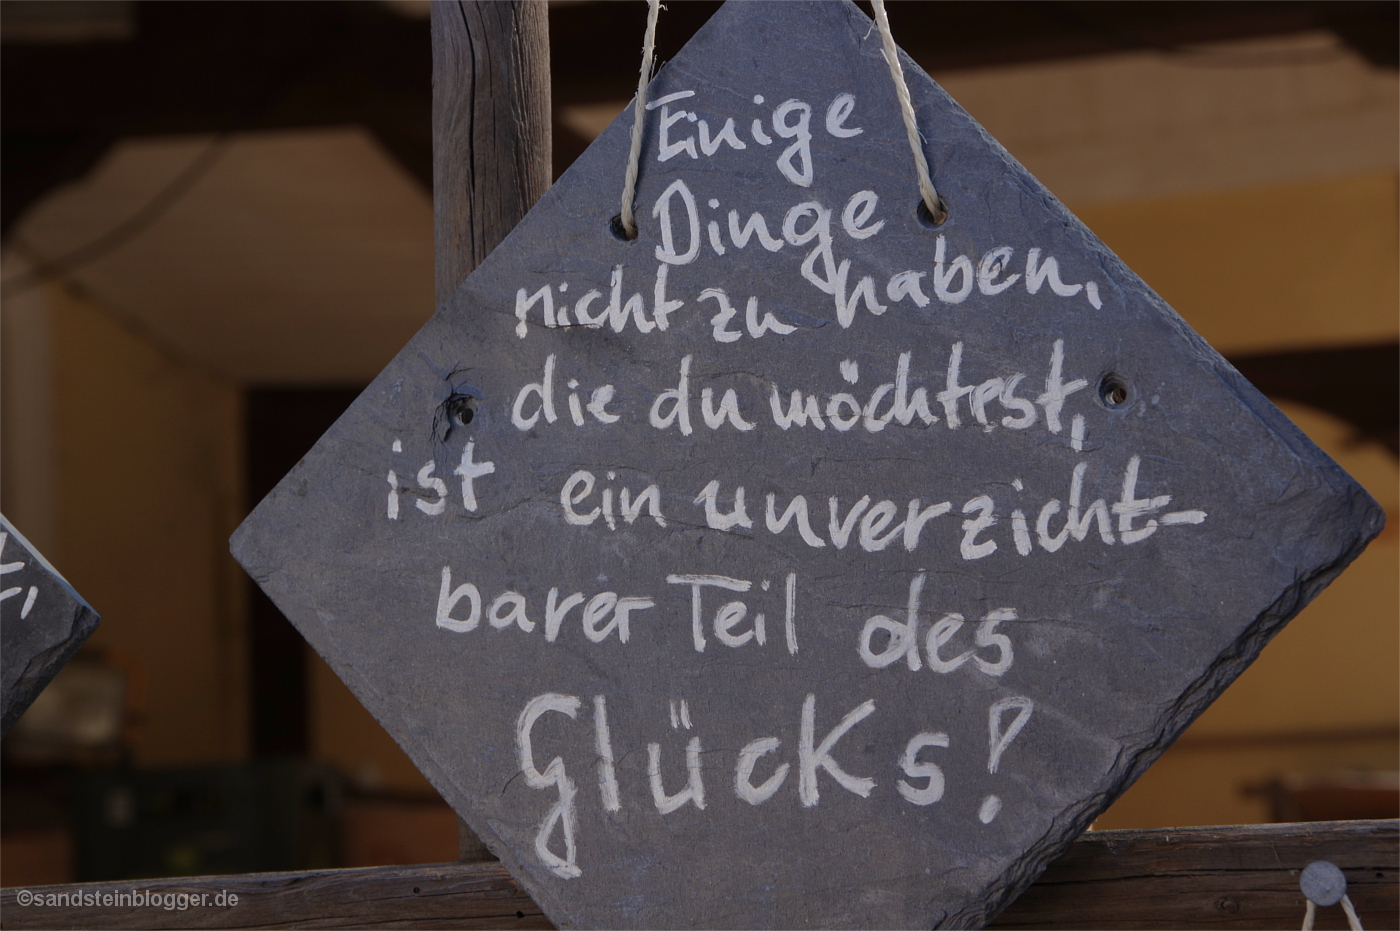 Einige
Dinge
nicht zu haben,
die du möchtest,
ist ein unverzicht-
barer Teil des
Glücks!
©sandsteinblogger.de